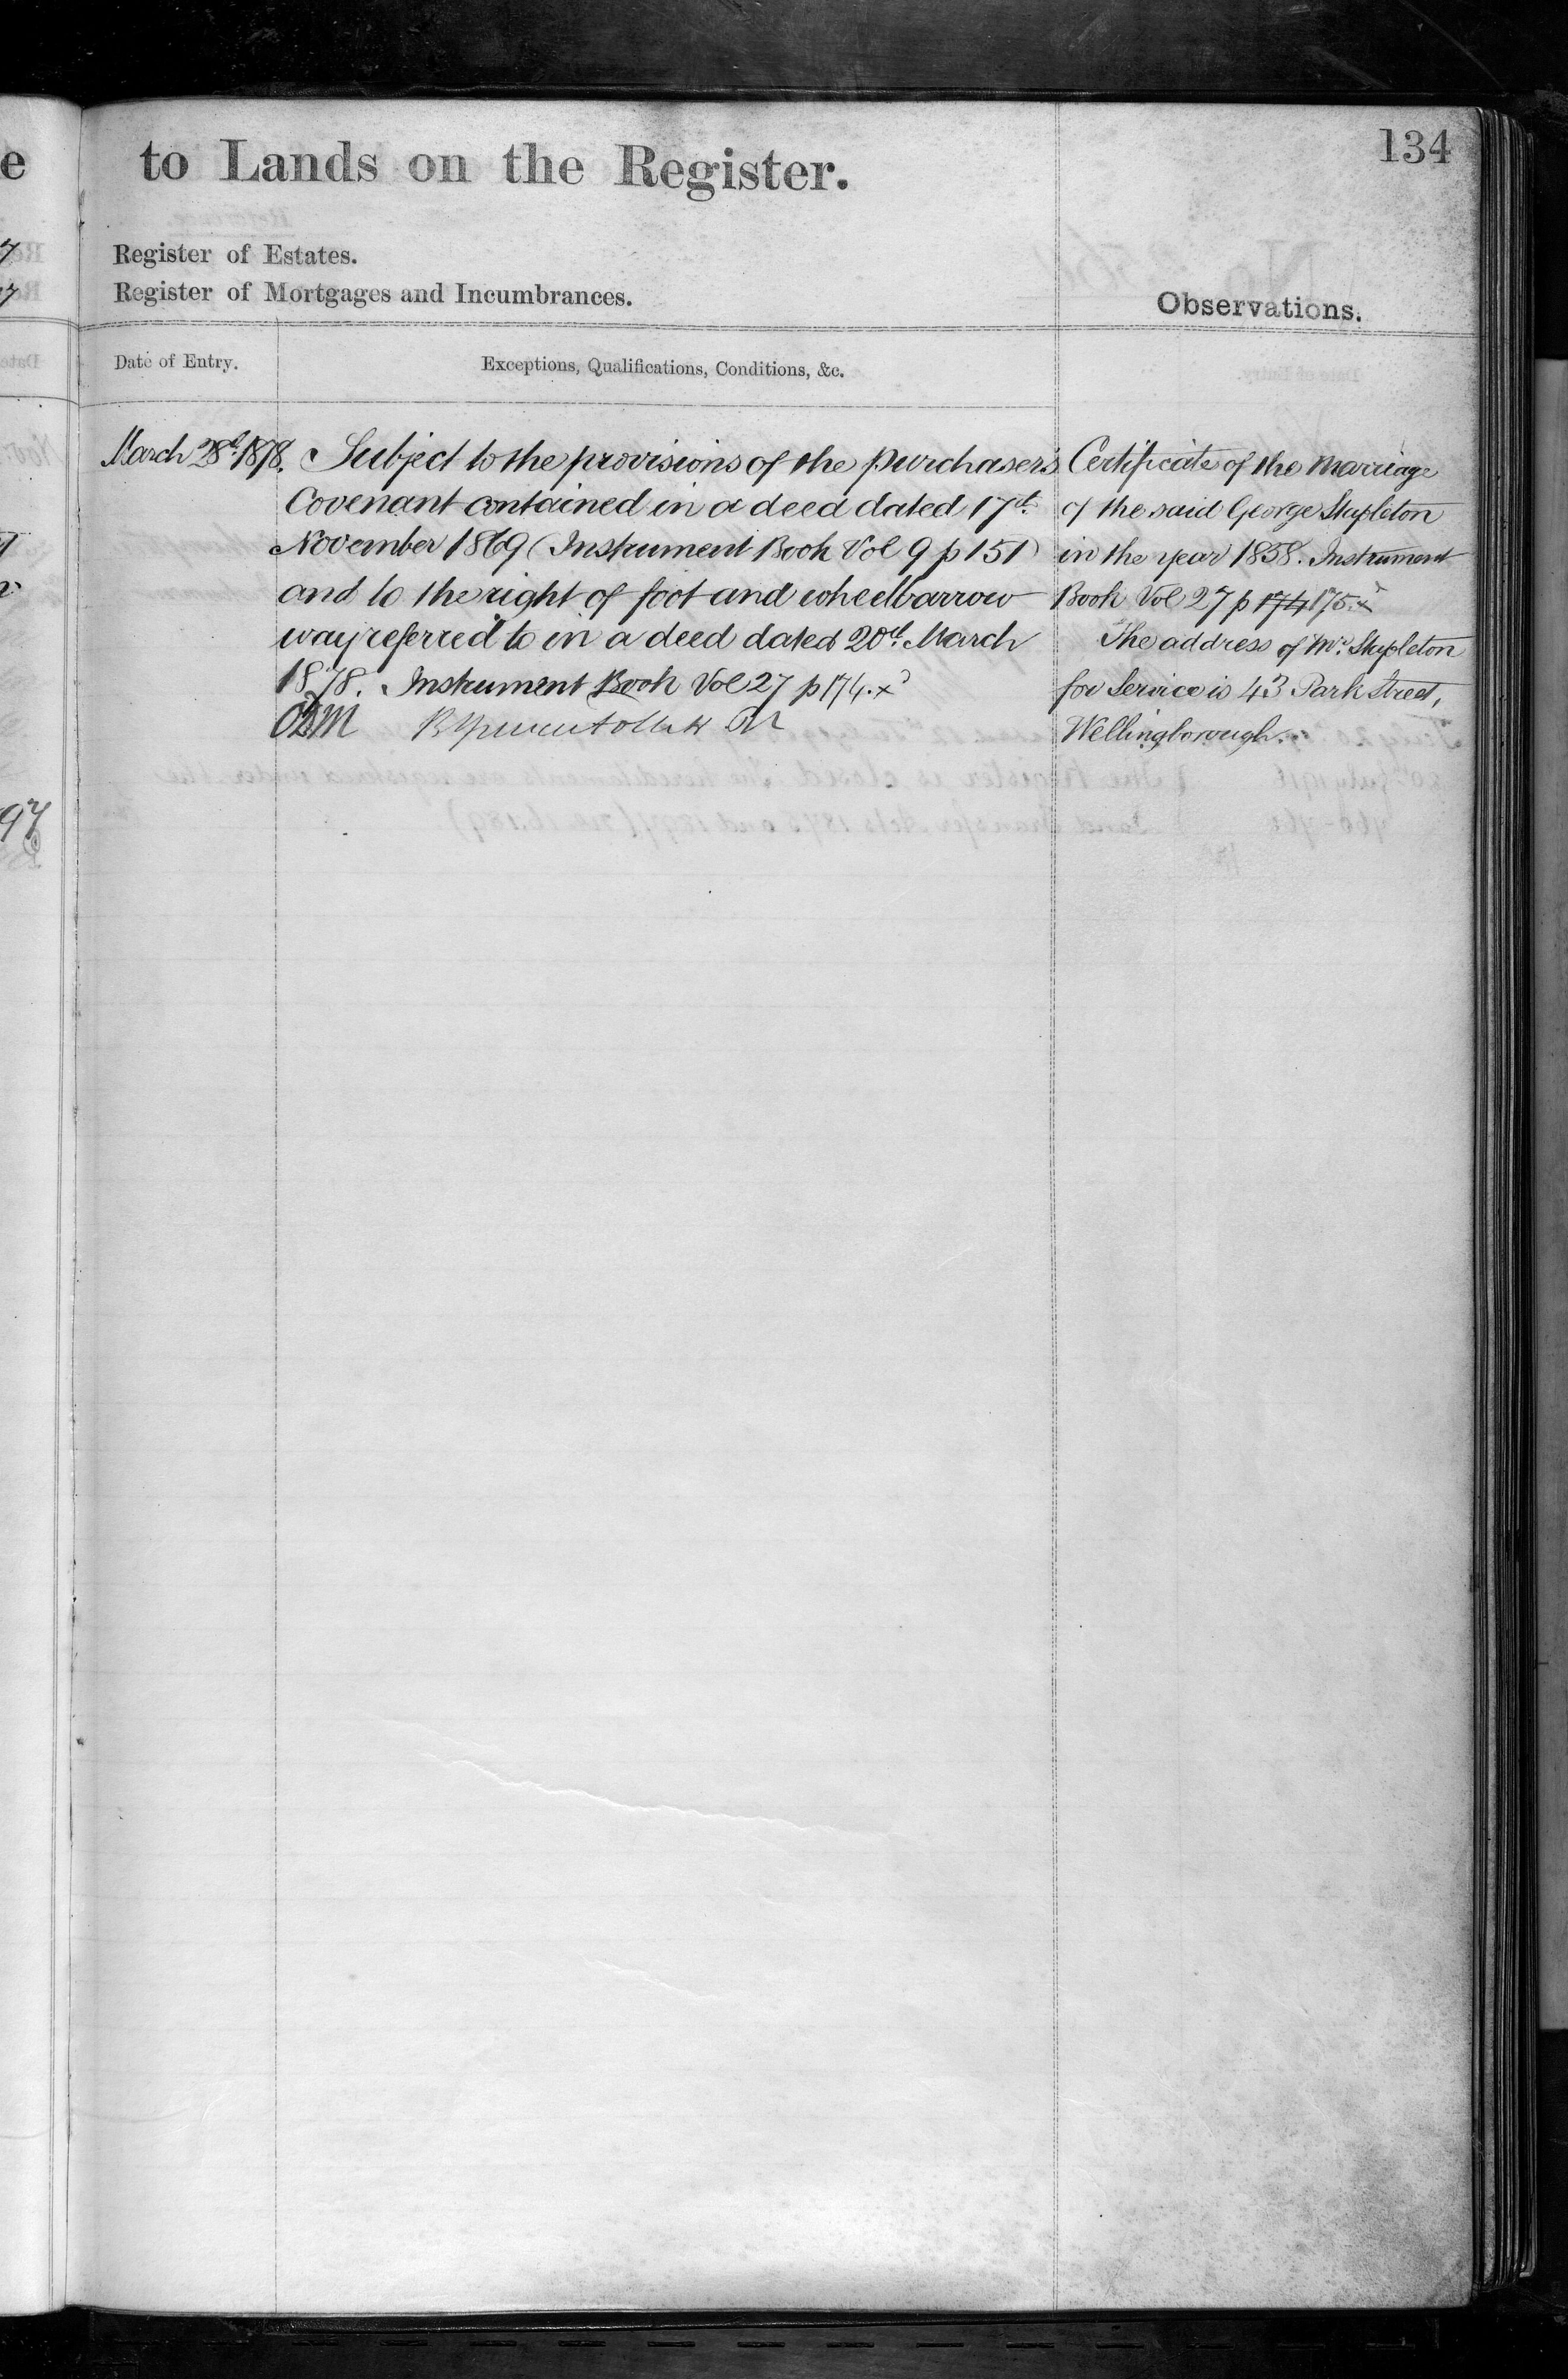 134
to Lands on the Register.
Register of Estates.
Register of Mortgages and Incumbrances.
Observations.
Date of Entry.
Exceptions, Qualifications, Conditions, &c.
March 28th 1878. Subject to the provisions of the purchaser's
Covenant contained in a deed dated 17th
November 1869 (Instrument Book Vol 9 p 151)
and to the right of foot and wheelbarrow
way referred to in a deed dated 20th March
1878. Instrument Book Vol 27 p 174. x
Certificate of the Marriage
of the said George Stapleton
in the year 1858. Instrument
Book Vol 27 p 174 175. x
The address of Mr. Stapleton
for Service is 43 Park Street,
Wellingborough.